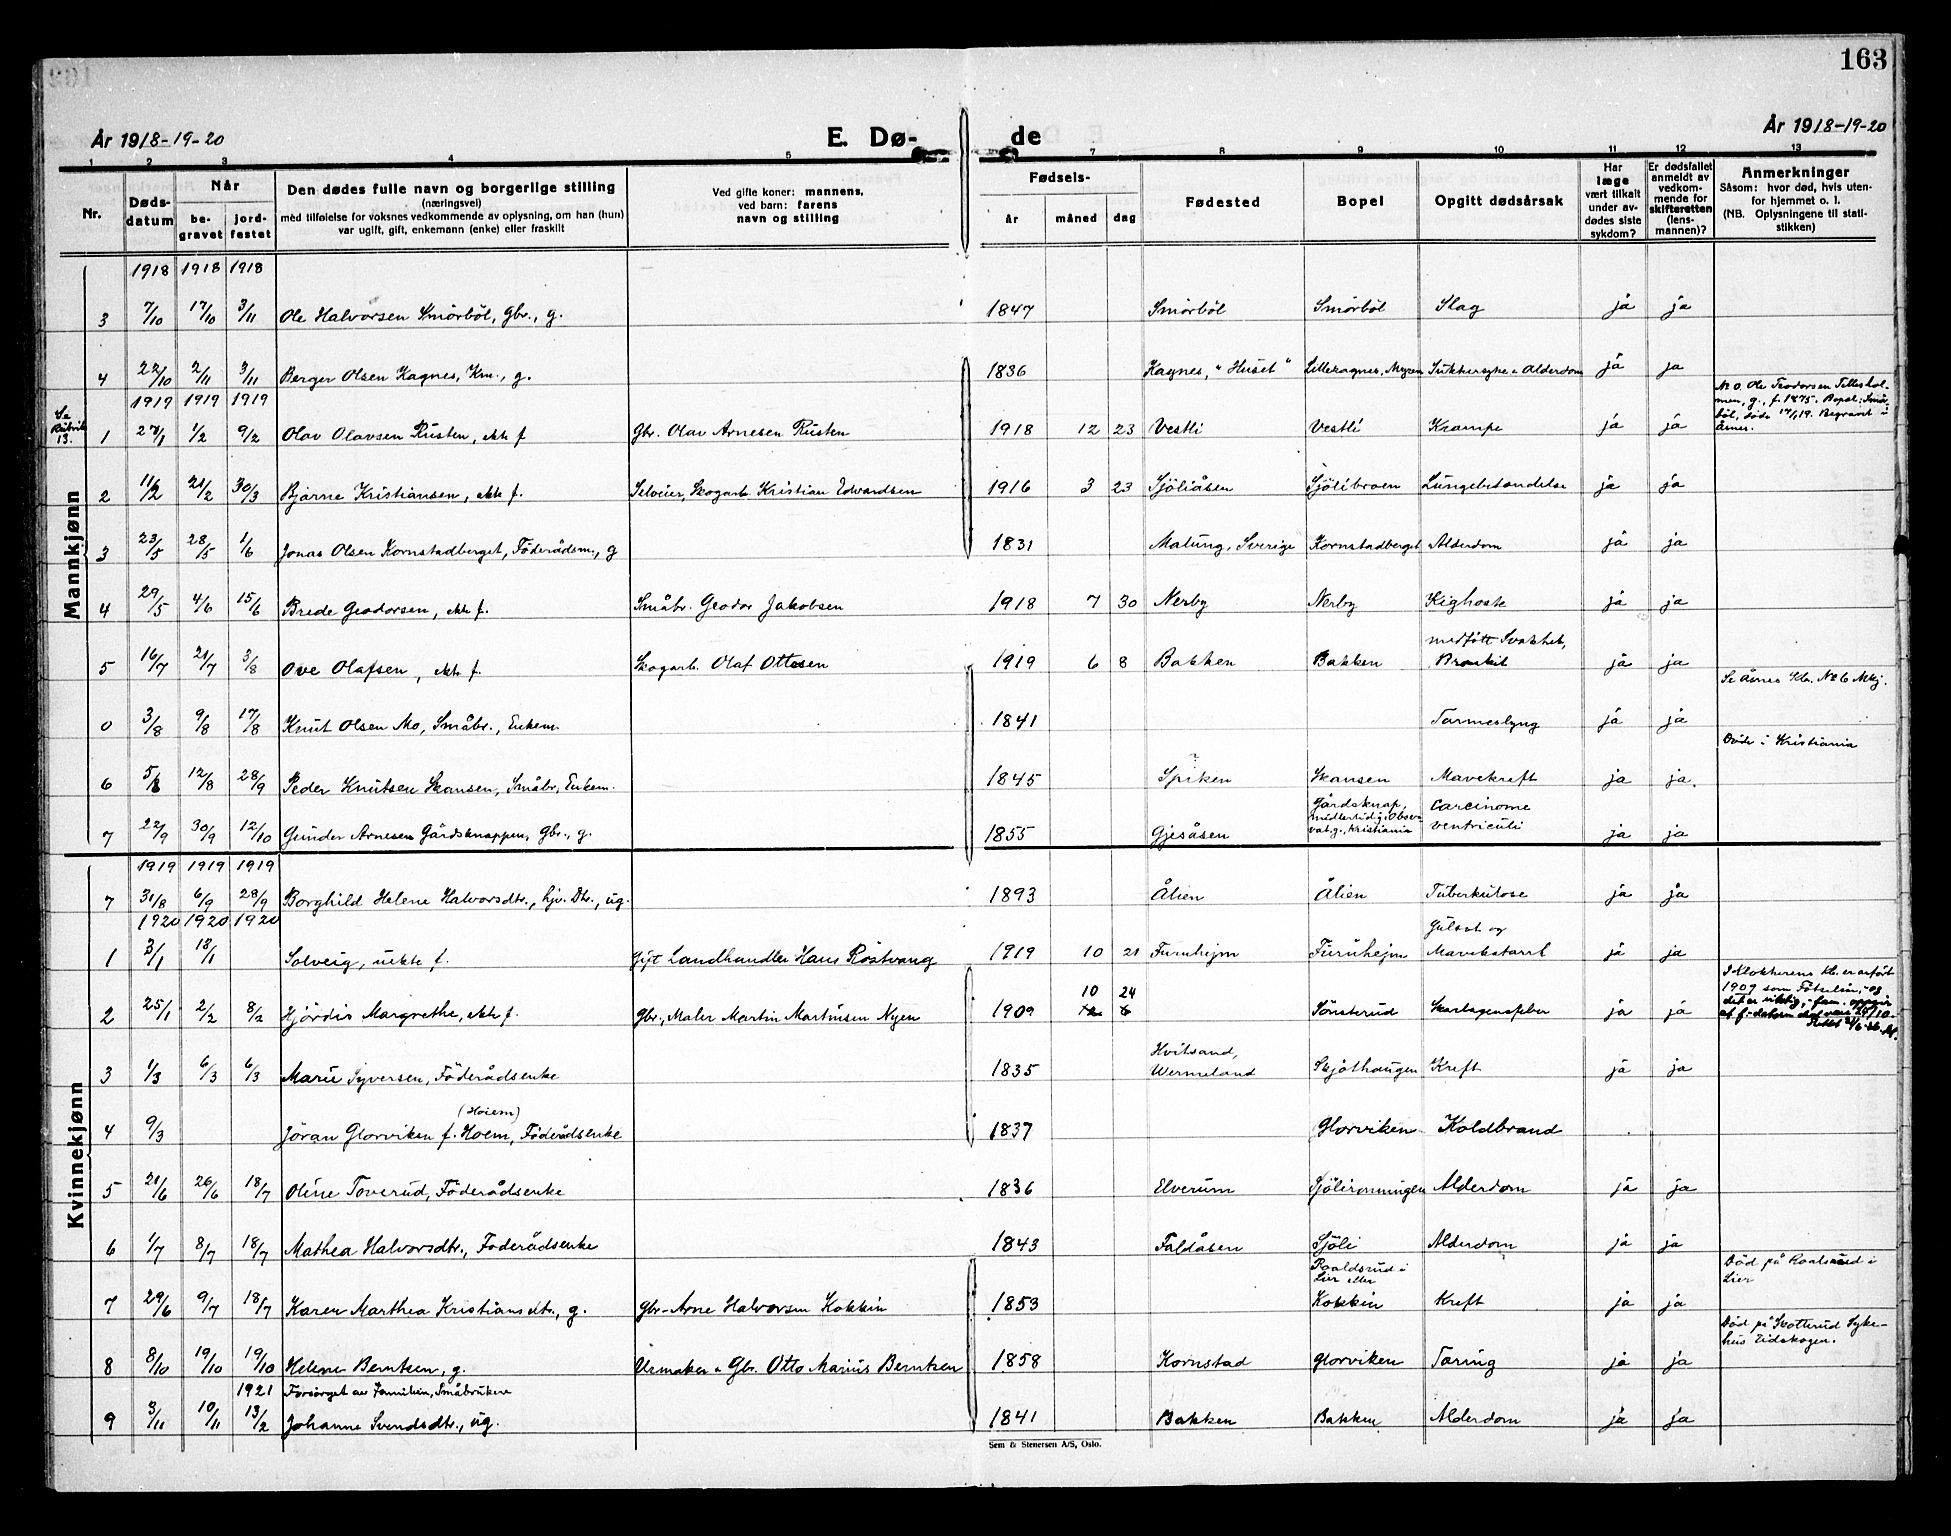 163
År 1918-19-20
E. Dø-
de
År 1918-19-20
1 2 3 4 5 7 8 9 10 11 12 13
Nr.
Døds-
datum
Når
be-
gravet
jord-
festet
Den dødes fulle navn og borgerlige stilling
(næringsvei)
med tilføielse for voksnes vedkommende av oplysning, om han (hun)
var ugift, gift, enkemann (enke) eller fraskilt
Ved gifte koner: mannens,
ved barn: farens
navn og stilling
Fødsels-
år måned dag
Fødested
Bopel
Opgitt dødsårsak
Har
læge
vært tilkalt
under av-
dødes siste
sykdom?
Er dødsfallet
anmeldt av
vedkom-
mende for
skifteretten
(lens-
mannen)?
Anmerkninger
Såsom: hvor død, hvis uten-
for hjemmet o. l.
(NB. Oplysningene til stati-
stikken)
Mannkjønn
1918 1918 1918
3 7/10 17/10 3/11 Ole Halvorsen Smörböl, Gbr., g. 1847 Smörböl Smörböl Slag ja ja
4 22/10 2/11 3/11 Berger Olsen Kagnes, Km., g. 1836 Kagnes, "Huset" Lillekagnes, Myren Sukkersyke & Alderdom ja ja
1919 1919 1919
No. Ole Teodorsen Tilleshol-
men, g., f. 1875. Bopel: Smör-
böl, döde 14/1 19. Begravet i
Åsnes.
Se
Rubrik
13.
1 27/1 1/2 9/2 Olav Olavsen Rusten, ekte f. Gbr. Olav Arnesen Rusten 1918 12 23 Vestli Vestli Krampe ja ja
2 11/2 21/2 30/3 Bjarne Kristiansen, ekte f. Selveier, Skogarb. Kristian Edvardsen 1916 3 23 Sjöliåsen Sjölibroen Lungebetændelse ja ja
3 23/5 28/5 1/6 Jonas Olsen Kornstadberget, Föderådsm., g 1831 Malung, Sverige Kornstadberget Alderdom ja ja
4 29/5 4/6 15/6 Brede Geodorsen, ekte f. Småbr. Geodor Jakobsen 1918 7 30 Nerby Nerby Kighoste ja ja
5 16/7 21/7 3/8 Ove Olafsen, ekte f. Skogarb. Olaf Ottesen 1919 6 8 Bakken Bakken medfött Svakhet,
Bronkit ja ja
Se Åsnes Kb. No 6 Mkj.
0 3/8 9/8 17/8 Knut Olsen Mo, Småbr., Enkem. 1841 Tarmeslyng ja ja
Döde i Kristiania
6 5/8 12/8 28/9 Peder Knutsen Skansen, Småbr., Enkem. 1845 Spiken Skansen Mavekreft ja ja.
7 22/9 30/9 12/10 Gunder Arnesen Gårdsknappen, Gbr., g. 1855 Gjesåsen Gårdsknap,
midlertidig: Kristiania Carcinome
ventriculi ja ja
Kvinnekjønn
1919 1919 1919
7 31/8 6/9 28/9 Borghild Helene Halvorsdtr., hjv. Dtr., ug. 1893 Ålien Ålien Tuberkulose ja ja
1920 1920 1920
1 3/1 18/1 Solveig, uekte f. Gift Landhandler Hans Röstvang 1919 10 21 Furuhejm Furuhejm Gulsot og
Mavekatarrh ja ja
2 25/1 2/2 8/2 Hjördis Margrethe, ekte f. Gbr., Maler Martin Martinsen Nyen 1909 10 24
12 6 Tönsterud Skarlagensfeber ja ja
I Klokkerens Kb. er anfört
1909 som Fötselsår, - og
det er riktig, - fam. oppgir
at f-datoen skal være 24/10-
3 1/3 6/3 6/3 Marie Syversen, Föderådsenke 1835 Hvitsand,
Wermeland Skjöthaugen Kreft ja ja
(Höiem)
4 9/3 Jöran Glorviken f. Hoem, Föderådsenke 1837 Glorviken Koldbrand
5 21/6 26/6 18/7 Oline Toverud, Föderådsenke 1836 Elverum Sjölirönningen Alderdom ja ja
6 1/7 8/7 18/7 Mathea Halvorsdtr., Föderådsenke 1843 Faldåsen Sjöli Alderdom ja ja
Död på Roalsrud i
Lier
7 29/6 9/7 18/7 Karen Marthea Kristiansdtr., g. Gbr. Arne Halvorsen Kokkin 1853 Roaldsrud i
Lier eller
Kokkin Kreft ja ja
Död på Skotterud Syke-
hus Eidskogen.
8 8/10 19/10 19/10 Helene Berntsen, g. Urmaker & Gbr. Otto Marius Berntsen 1858 Kornstad Glorviken Tæring ja ja
1921 Forsörget av Familien, Småbrukere
9 3/11 10/11 13/2 Johanne Svendsdtr., ug. 1841 Bakken Bakken Alderdom ja ja
Sem & Stenersen A/S, Oslo.